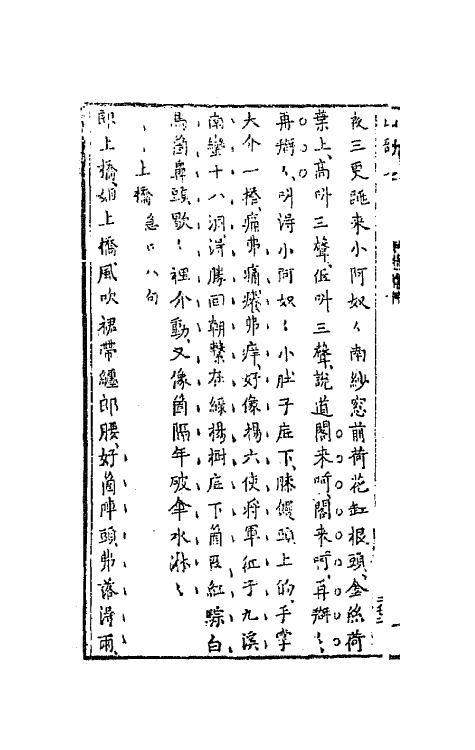 夜三更跳來小阿奴〻南紗窓前荷花缸根頭金絲荷
葉上高叫三聲低叫三聲說道閣來呵閣來呵再搿〻
再搿〻叫得小阿奴〻小肚子底下膝饅頭上的手掌
大介一搭痛弗痛癢弗痒好像楊六使將軍征子九溪
南蠻十八洞得勝回朝繫在綠楊樹底下箇匹紅鬃白
馬箇鼻頭歇〻裡介動又像箇隔年破傘水淋〻
上橋 急口八句
郎上橋姐上橋風吹裙帶纏郎腰好箇陣頭弗落得雨